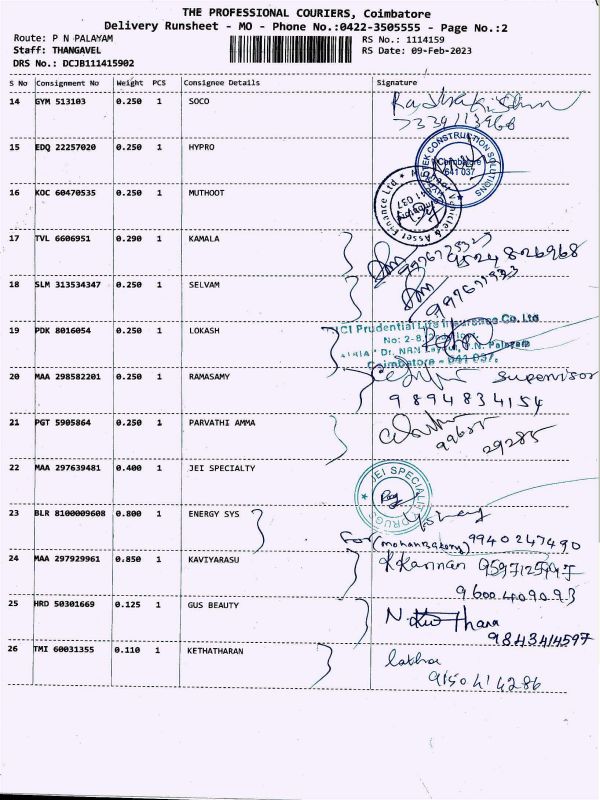 THE PROFESSIONAL COURIERS, Coimbatore
Delivery Runsheet - MO - Phone No.:0422-3505555 - Page No.:2
Route: P N PALAYAM
RS No.: 1114159
Staff: THANGAVEL
RS Date: 09-Feb-2023
DRS No.: DCJB111415902
S No Consignment No Weight PCS Consignee Details Signature
14 GYM 513103 0.250 1 SOCO
7339113968
15 EDQ 22257020 0.250 1 HYPRO
TEK CONSTRUCTION SOLUTIONS
Coimbatore
641 037
16 KOC 60470535 0.250 1 MUTHOOT
Vehicle & Asset Finance Ltd
17 TVL 6606951 0.290 1 KAMALA
9524826968
18 SLM 313534347 0.250 1 SELVAM
19 PDK 8016054 0.250 1 LOKASH
ICI Prudential Life Insurance Co. Ltd
No: 2-8,
Dr. NRN Layout, P.N. Palayam
Coimbatore - 641 037.
20 MAA 298582201 0.250 1 RAMASAMY
Supervisor
9894834154
21 PGT 5905864 0.250 1 PARVATHI AMMA
99655
29285
22 MAA 297639481 0.400 1 JEI SPECIALTY
JEI SPECIALITY DRUGS
23 BLR 8100009608 0.800 1 ENERGY SYS
For 9940247490
24 MAA 297929961 0.850 1 KAVIYARASU
K Kannan
9600409093
25 HRD 50301669 0.125 1 GUS BEAUTY
9843414597
26 TMI 60031355 0.110 1 KETHATHARAN
latha
9150414286